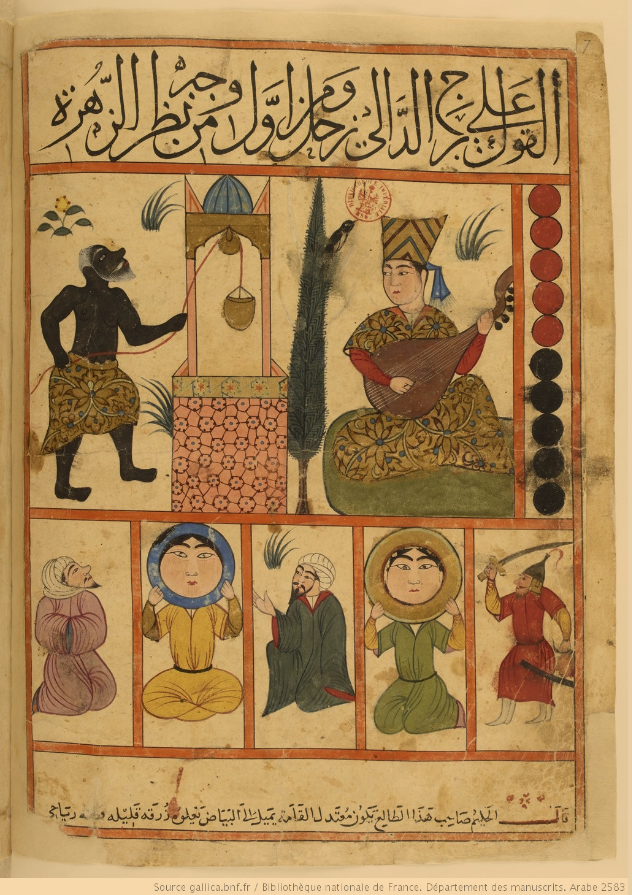 7
القول علي برج الدَّالي زحل ومن اوَّل وجه من نظر الزُّهرة
قال الحكيم صاحب هذا الطالع يكون معتدل القامة يميل الى البياض تعلوه زرقه قليله
Source gallica.bnf.fr / Bibliothèque nationale de France. Département des manuscrits. Arabe 2583